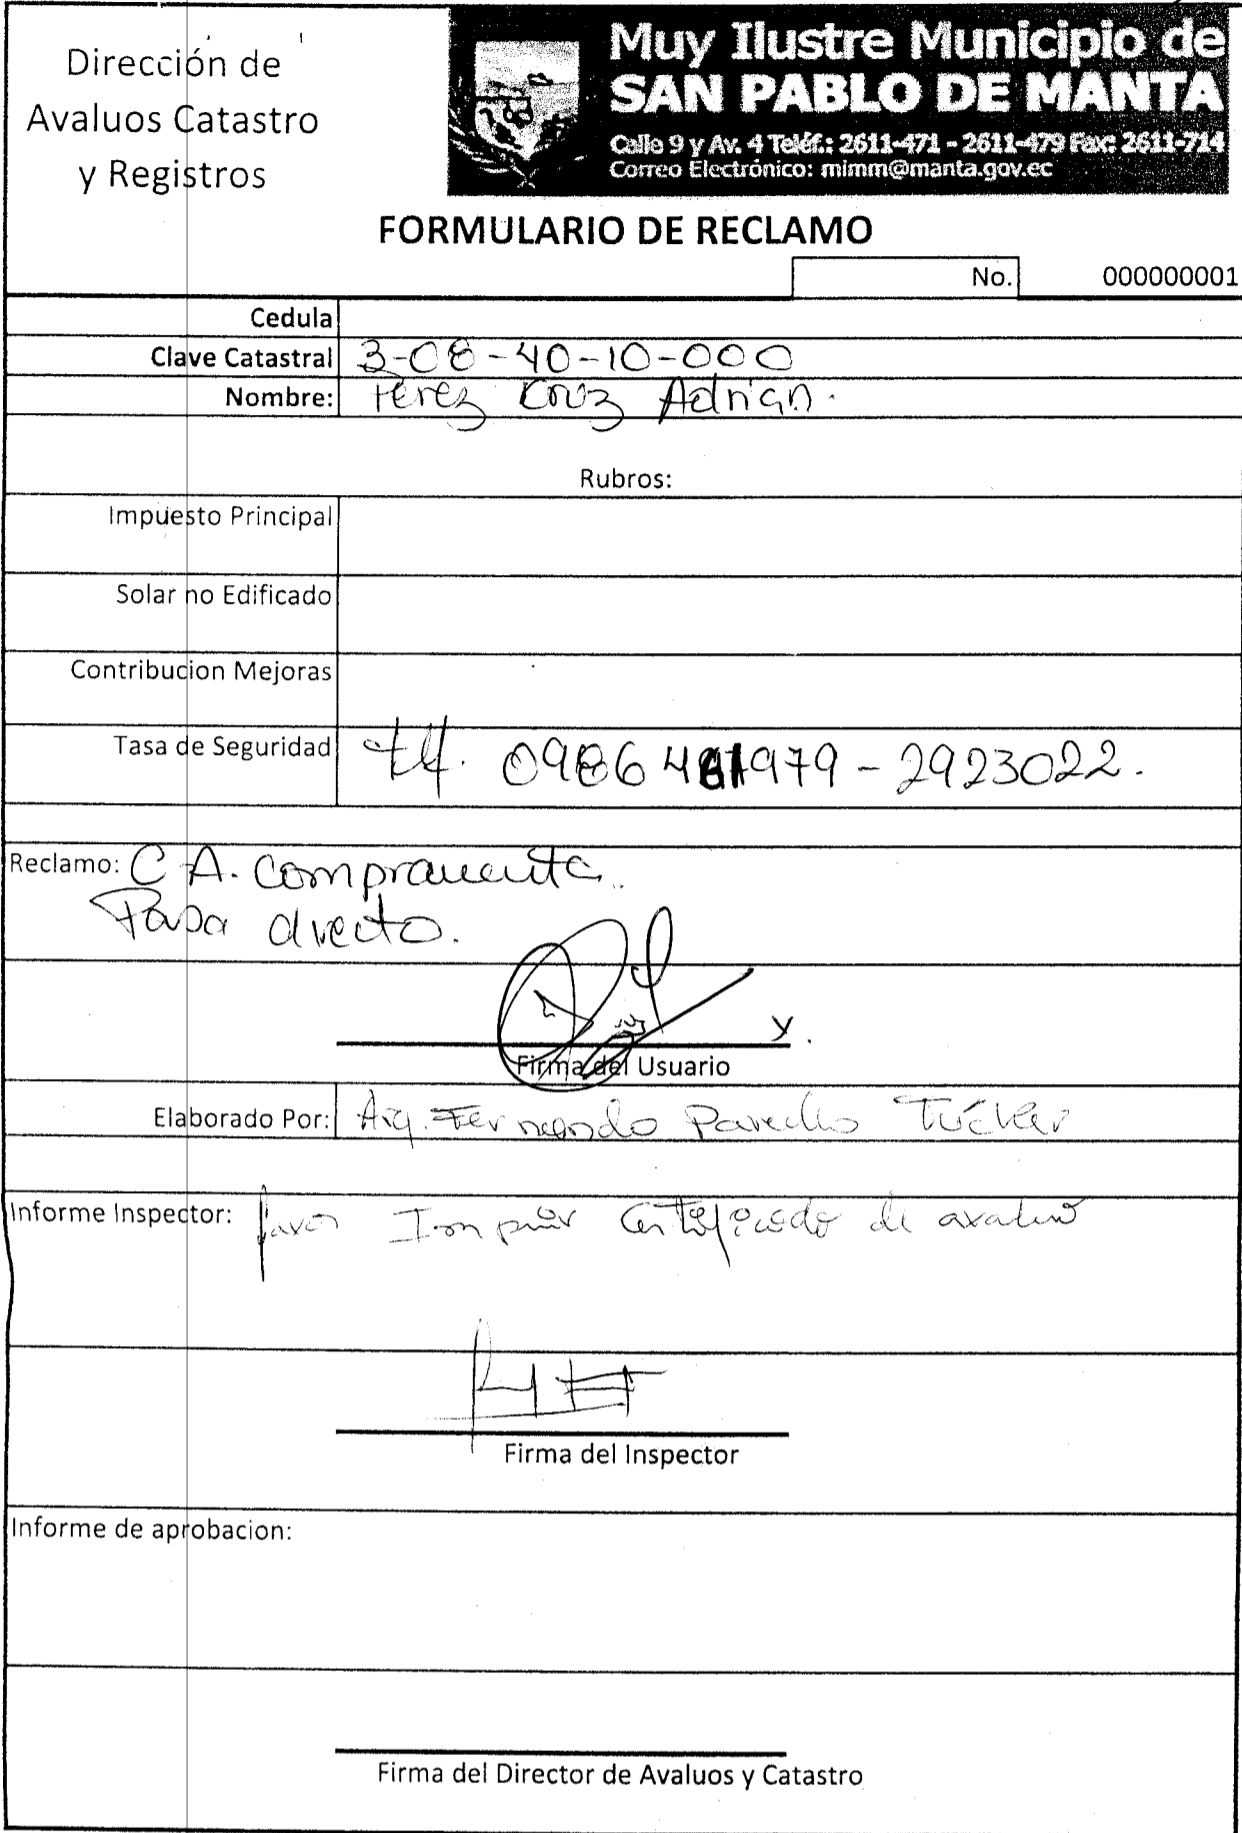 Dirección de
Avaluos Catastro
y Registros
Muy Ilustre Municipio de
SAN PABLO DE MANTA
Calle 9 y Av. 4 Teléf.: 2611-471 - 2611-479 Fax: 2611-714
Correo Electrónico: mimm@manta.gov.ec
FORMULARIO DE RECLAMO
No. 000000001
Cedula
Clave Catastral 3-08-40-10-000
Nombre: Perez Cruz Adrian.
Rubros:
Impuesto Principal
Solar no Edificado
Contribucion Mejoras
Tasa de Seguridad 0986 979 - 2923022.
Reclamo: C A. Compraventa
Pasa directo.
Firma del Usuario
Elaborado Por: Arq. Fernando
Informe Inspector: favor Certificado de avaluo
Firma del Inspector
Informe de aprobacion:
Firma del Director de Avaluos y Catastro